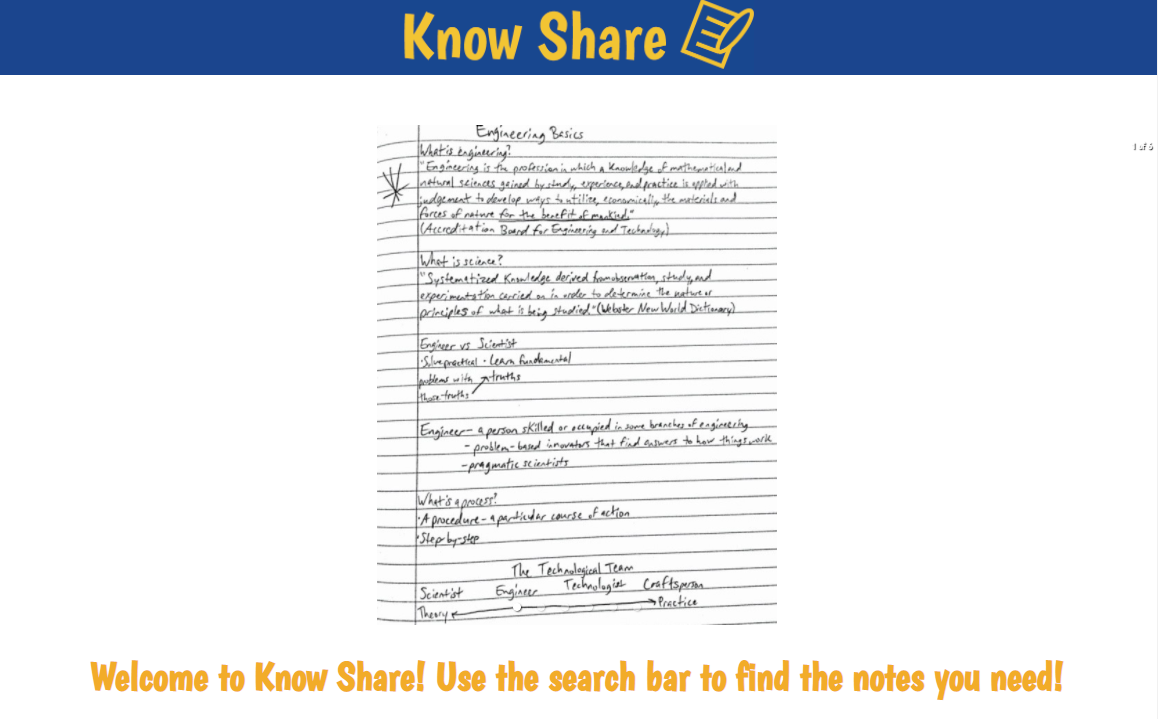 Know Share
1 of 6
Engineering Basics
What is engineering?
"Engineering is the profession in which a knowledge of mathematical and
natural sciences gained by study, experience, and practice is applied with
judgement to develop ways to utilize, economically, the materials and
forces of nature for the benefit of mankind."
(Accreditation Board for Engineering and Technology)
What is science?
"Systematized knowledge derived from observation, study, and
experimentation carried on in order to determine the nature or
principles of what is being studied." (Webster New World Dictionary)
Engineer vs Scientist
·Solve practical · Learn fundamental
problems with truths
those truths
Engineer - a person skilled or occupied in some branches of engineering
- problem-based innovators that find answers to how things work
- pragmatic scientists
What is a process?
·A procedure - a particular course of action
·Step-by-step
The Technological Team
Scientist Engineer Technologist Craftsperson
Theory Practice
Welcome to Know Share! Use the search bar to find the notes you need!